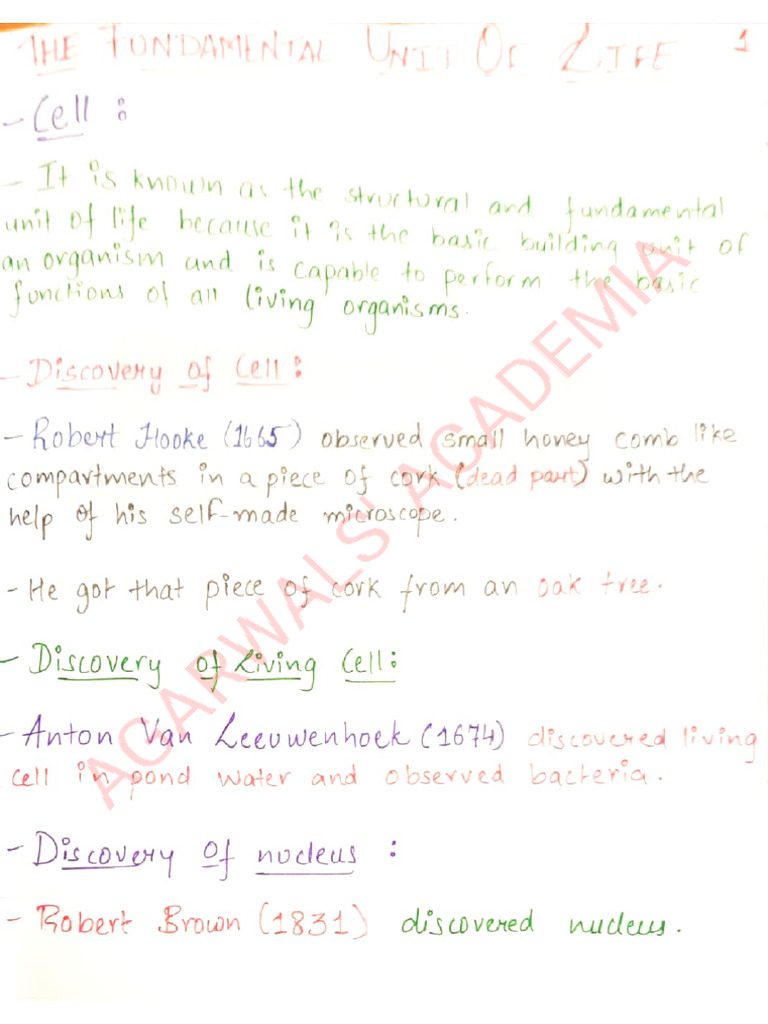 THE FUNDAMENTAL UNIT OF LIFE 1
- Cell :
- It is known as the structural and fundamental
unit of life because it is the basic building unit of
an organism and is capable to perform the basic
functions of all living organisms.
- Discovery of Cell :
- Robert Hooke (1665) observed small honey comb like
compartments in a piece of cork (dead part) with the
help of his self-made microscope.
- He got that piece of cork from an oak tree.
- Discovery of Living Cell :
- Anton Van Leeuwenhoek (1674) discovered living
cell in pond water and observed bacteria.
- Discovery of nucleus :
- Robert Brown (1831) discovered nucleus.
AGARWALS' ACADEMIA